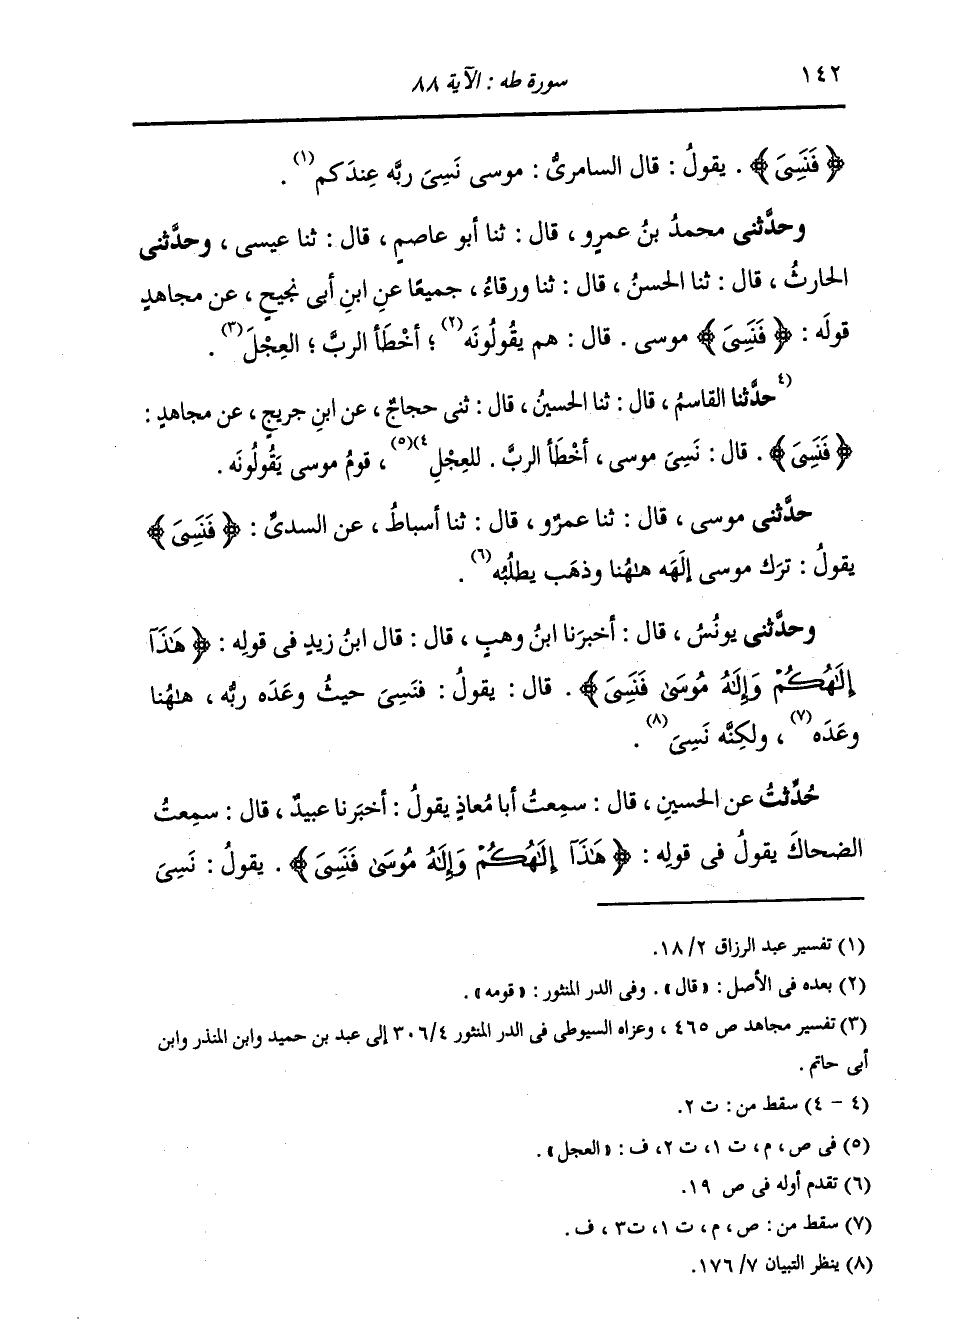 ١٤٢ سورة طه : الآية ٨٨
﴿ فَنَسِىَ ﴾ . يقولُ : قال السامرىُّ : موسى نَسِىَ ربَّه عِندَكم (١) .
وحدَّثنى محمدُ بنُ عمرٍو ، قال : ثنا أبو عاصمٍ ، قال : ثنا عيسى ، وحدَّثنى
الحارثُ ، قال : ثنا الحسنُ ، قال : ثنا ورقاءُ ، جميعًا عن ابنِ أبى نجيحٍ ، عن مجاهدٍ
قولَه : ﴿ فَنَسِىَ ﴾ موسى . قال : هم يقُولُونَه (٢) ؛ أخْطَأ الربَّ ؛ العِجْلَ (٣) .
(٤) حدَّثنا القاسمُ ، قال : ثنا الحسينُ ، قال : ثنى حجاجٌ ، عن ابنِ جريجٍ ، عن مجاهدٍ :
﴿ فَنَسِىَ ﴾ . قال : نَسِىَ موسى ، أخْطَأ الربَّ . للعِجْلِ ٤)(٥) ، قومُ موسى يَقُولُونَه .
حدَّثنى موسى ، قال : ثنا عمرٌو ، قال : ثنا أسباطُ ، عن السدىِّ : ﴿ فَنَسِىَ ﴾
يقولُ : ترَك موسى إلَهَه هلهُنا وذهَب يطلُبُه (٦) .
وحدَّثنى يونُسُ ، قال : أخبرَنا ابنُ وهبٍ ، قال : قال ابنُ زيدٍ فى قولِه : ﴿ هَٰذَآ
إِلَٰهُكُمْ وَإِلَٰهُ مُوسَىٰ فَنَسِىَ ﴾ . قال : يقولُ : فنَسِىَ حيثُ وعَدَه ربُّه ، هلهُنا
وعَدَه (٧) ، ولكِنَّه نَسِىَ (٨) .
حُدِّثتُ عن الحسينِ ، قال : سمِعتُ أبا مُعاذٍ يقولُ : أخبَرنا عبيدٌ ، قال : سمِعتُ
الضحاكَ يقولُ فى قولِه : ﴿ هَٰذَآ إِلَٰهُكُمْ وَإِلَٰهُ مُوسَىٰ فَنَسِىَ ﴾ . يقولُ : نَسِىَ
(١) تفسير عبد الرزاق ١٨/٢.
(٢) بعده فى الأصل : «قال» . وفى الدر المنثور : «قومه» .
(٣) تفسير مجاهد ص ٤٦٥ ، وعزاه السيوطى فى الدر المنثور ٣٠٦/٤ إلى عبد بن حميد وابن المنذر وابن
أبى حاتم .
(٤ - ٤) سقط من : ت ٢.
(٥) فى ص ، م ، ت ١، ت ٢، ف : «العجل» .
(٦) تقدم أوله فى ص ١٩.
(٧) سقط من : ص ، م ، ت ١، ت٣ ، ف .
(٨) ينظر التبيان ١٧٦/٧.